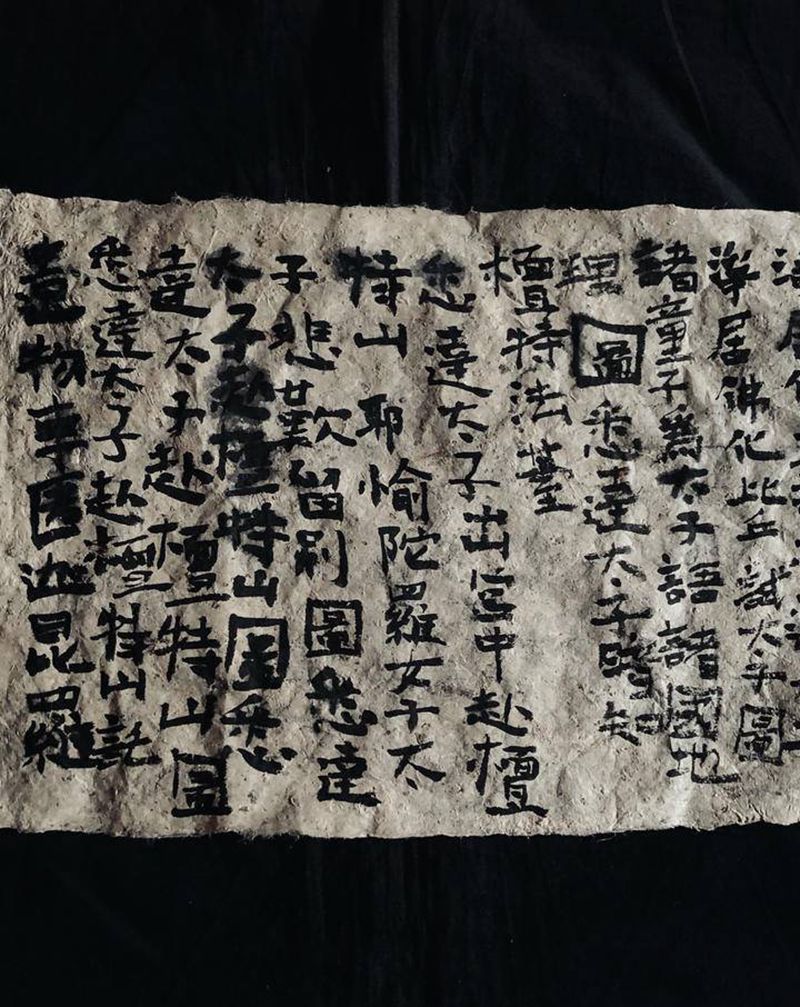 居佛化比丘試太子圖
諸童子爲太子語諸國地
理圖悉達太子時知
檀特法臺
悉達太子出宮中赴檀
特山 耶愉陀羅女子太
子悲歎留別圖悉達
太子赴檀特山圖悉
達太子赴檀特山圖
悉達太子赴檀特山託
遺物車匿迦毘羅